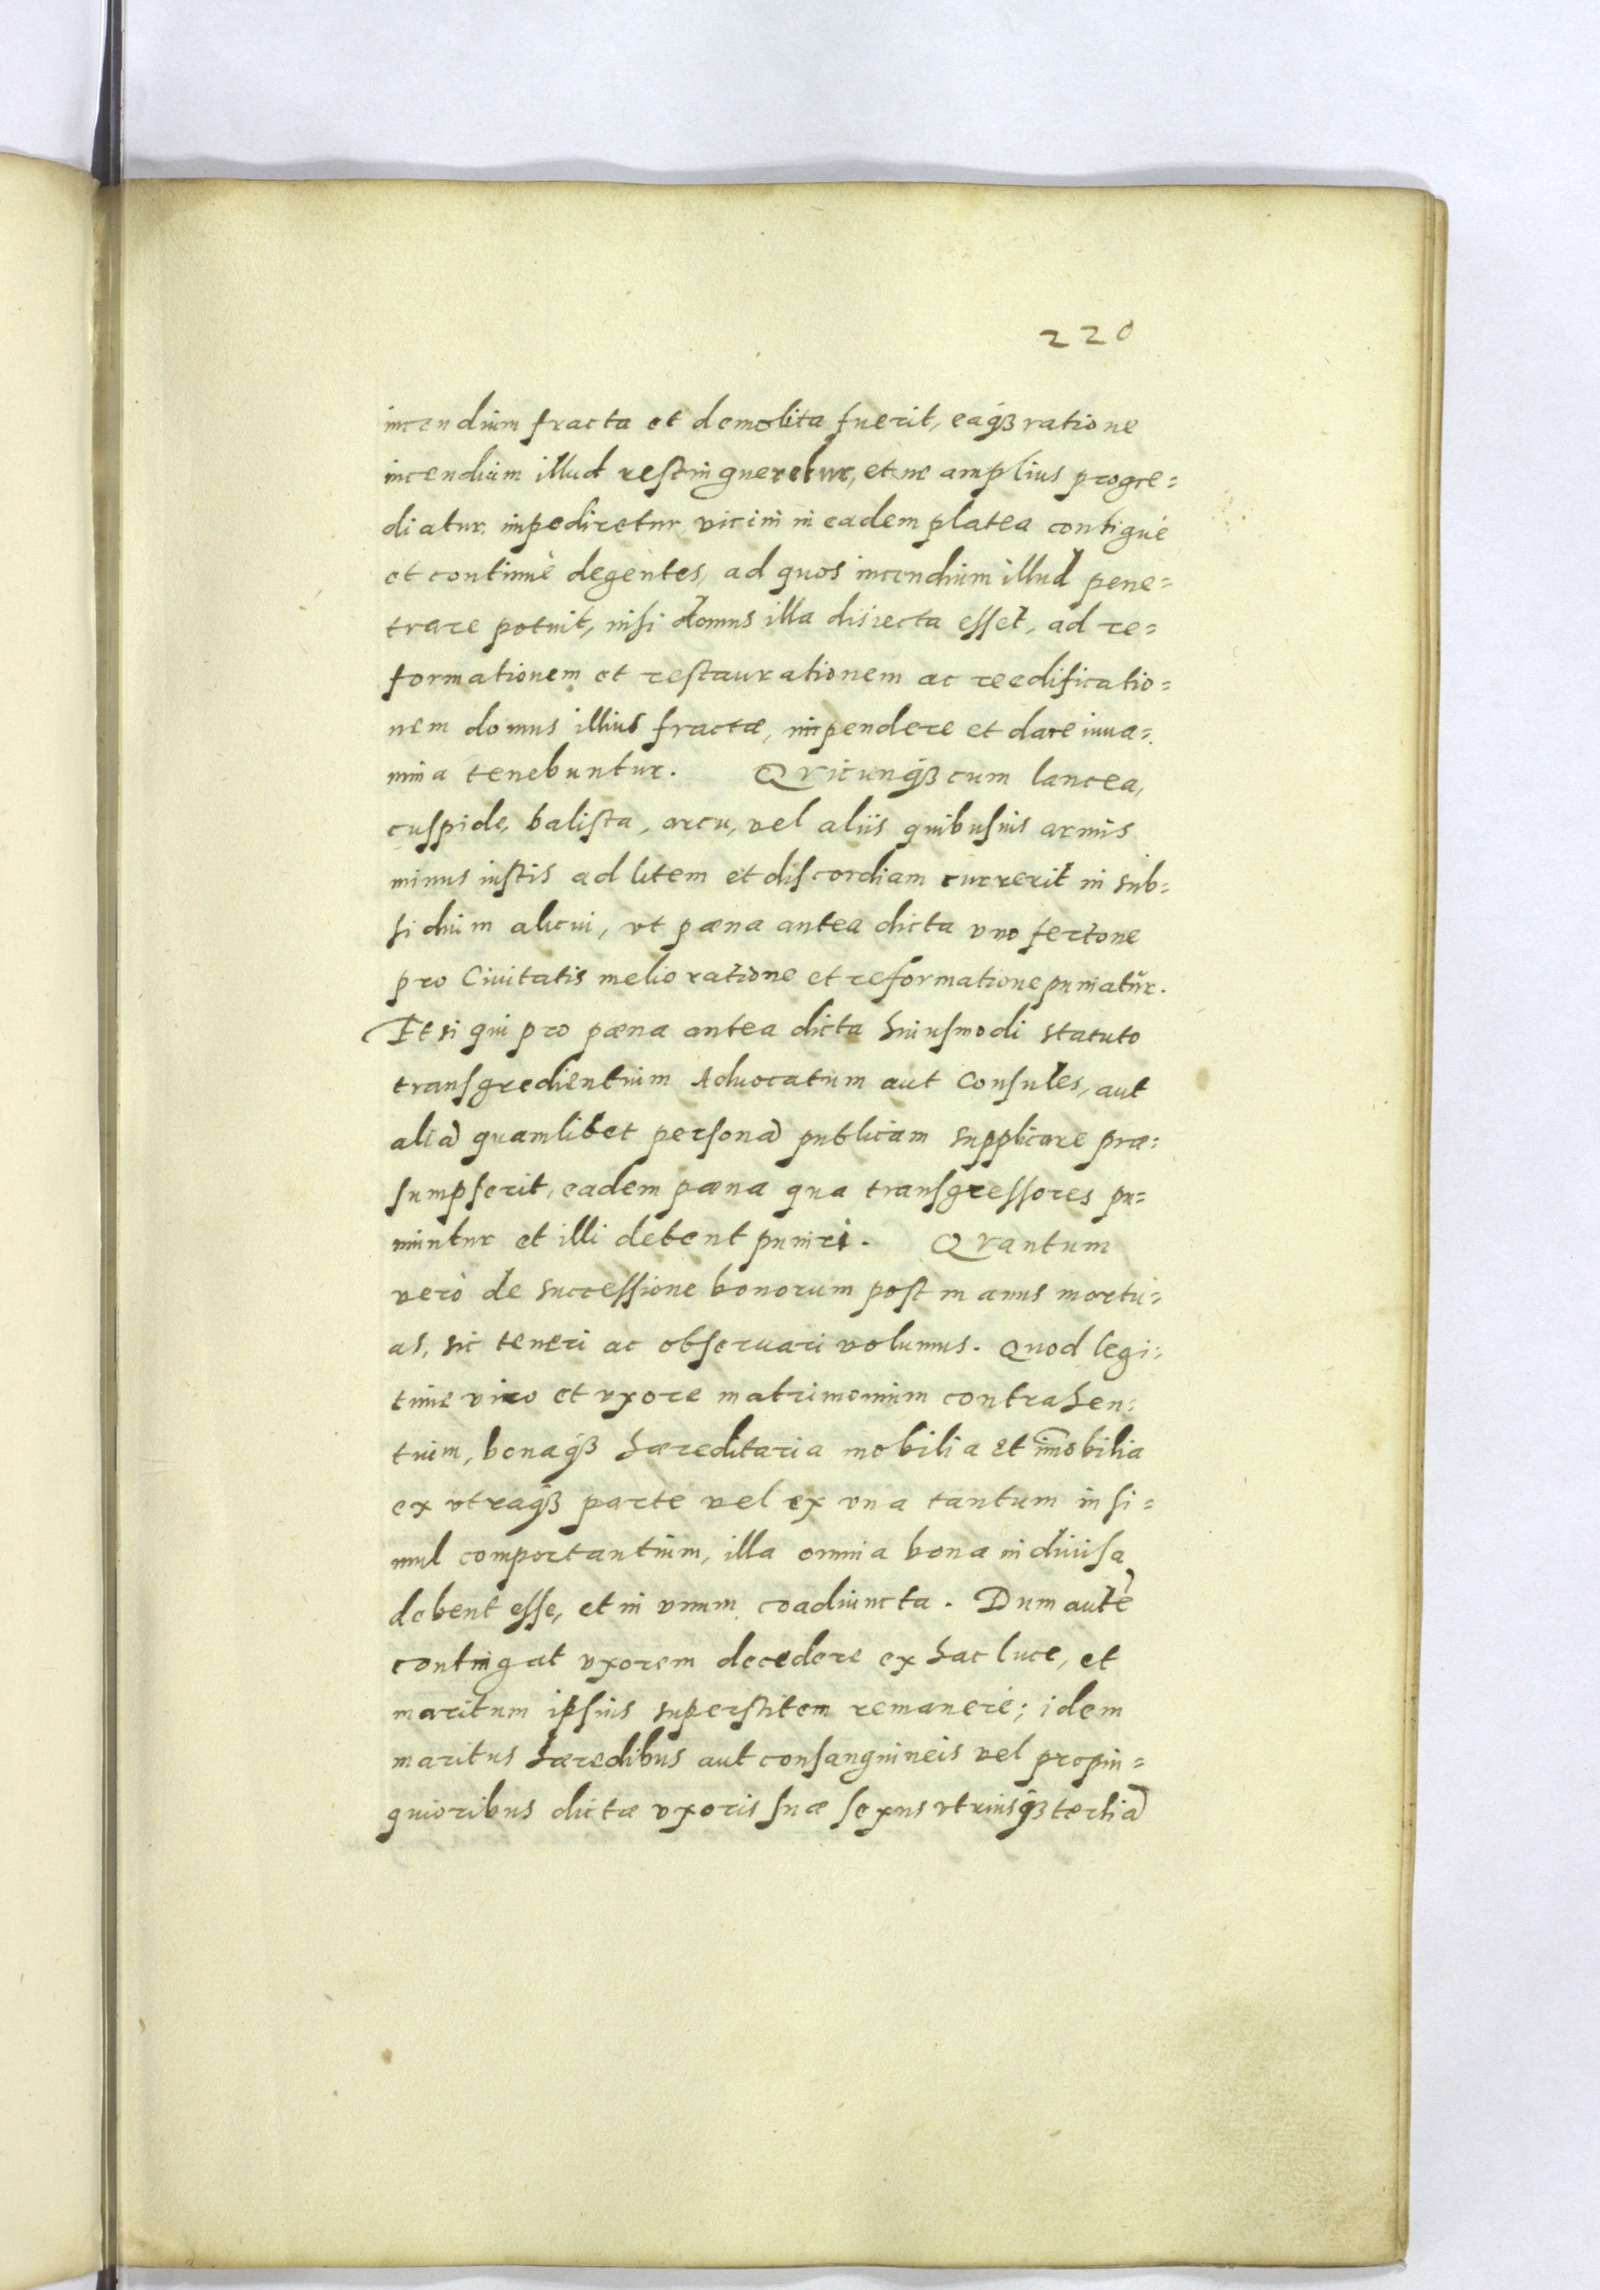 220
incendium fracta et demolita fuerit, eaqꝫ ratione
incendium illud restingueretur, et ne amplius progre=
diatur, impediretur vicini in eadem platea contiguè
et continuè degentes, ad quos incendium illud pene=
trare potuit, nisi domus illa disiecta esset, ad re=
formationem et restaurationem ac reedificatio=
nem domus illius fractæ, impendere et dare iuua=
mina tenebuntur. Qvicunqꝫ cum lancea,
cuspide, balista, arcu, vel aliis quibusuis armis
minus iustis ad litem et discordiam currerit in sub=
sidium alicui, vt pæna antea dicta vno fertone
pro Ciuitatis melioratione et reformatione puniatur.
Et si qui pro pæna antea dicta huiusmodi statuto
transgredientium Aduocatum aut Consules, aut
aliā quamlibet personā publicam supplicare præ=
sumpserit, eadem pæna qua transgressores pu=
niuntur et illi debent puniri. Qvantum
verò de successione bonorum post manus mortu=
as, sic teneri ac obseruari volumus. Quod legi=
time viro et vxore matrimonium contrahen=
tium, bonaqꝫ hæreditaria mobilia et im̄obilia
ex vtraqꝫ parte vel ex vna tantum insi=
mul comportantium, illa omnia bona indiuisa
debent esse, et in vnum coadiuncta. Dum autē
contingat vxorem decedere ex hac luce, et
maritum ipsius superstitem remanere; idem
maritus hæredibus aut consanguineis vel propin=
quioribus dictæ vxoris suæ sexus vtriusqꝫ tertiā